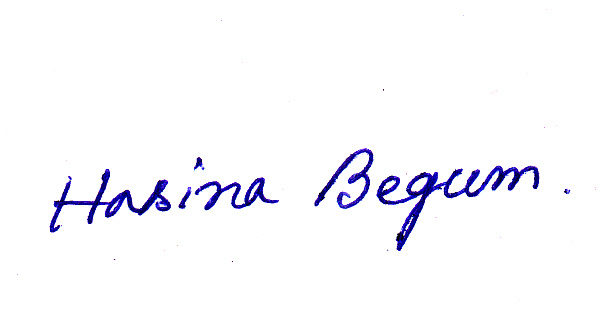 Hasina Begum.